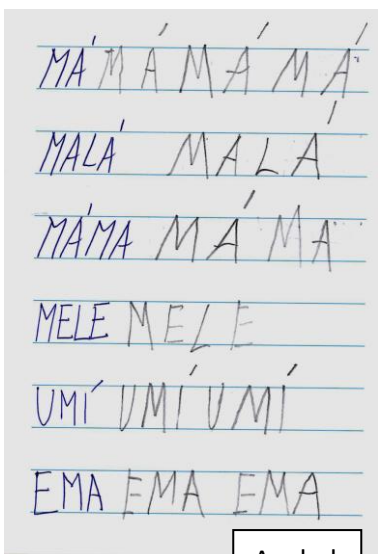 MÁ MÁ MÁ MÁ
MALÁ MALÁ
MÁMA MÁMA
MELE MELE
UMÍ UMÍ UMÍ
EMA EMA EMA